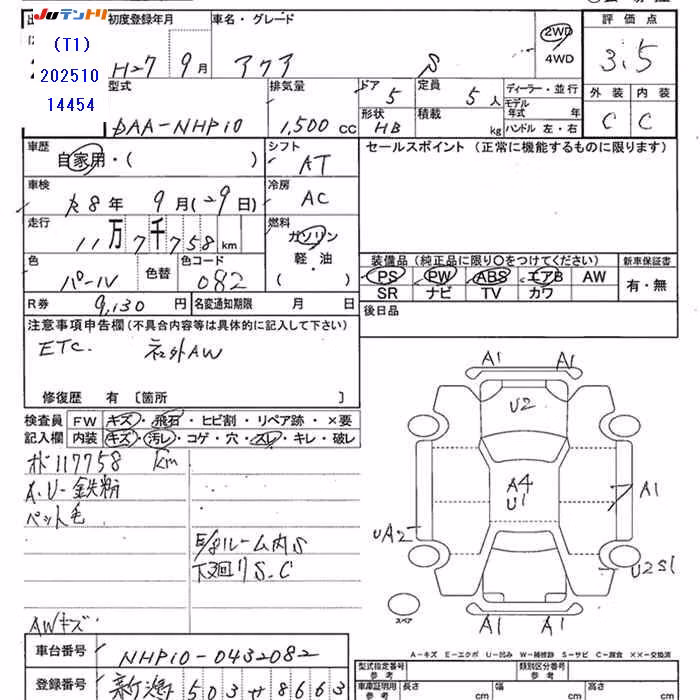 Juテントリ
(T1)
202510
14454
初度登録年月 車名・グレード 評価点
H27 9月 アクア S 2WD 4WD 3.5
型式 排気量 ドア 5 定員 5人 ディーラー・並行 外装 内装
DAA-NHP10 1,500cc 形状 HB 積載 kg モデル年式 年 ハンドル 左・右 C C
車歴 シフト セールスポイント (正常に機能するものに限ります)
自家用・( ) AT
車検 冷房
R8年 9月(29日) AC
走行 燃料
11万7千758km ガソリン 軽・油
色 色替 色コード ( )
パール 082
装備品(純正品に限り○をつけてください) 新車保証書
PS PW ABS エアB AW 有・無
SR ナビ TV カワ
R券 9,130円 名変通知期限 月 日 後日品
注意事項申告欄(不具合内容等は具体的に記入して下さい)
ETC. 社外AW
修復歴 有 〔箇所 〕
検査員 FW キズ・飛石・ヒビ割・リペア跡・×要
記入欄 内装 キズ・汚レ・コゲ・穴・スレ・キレ・破レ
117758 km
A.U-鉄粉
ペット毛
ルーム内S
下廻リS.C
AWキズ
A1 A1
U2
A4
U1
A1
UA2
U2S1
スペア
A1 A1
A-キズ E-エクボ U-凹み W-補修跡 S-サビ C-腐食 ××-交換済
車台番号 NHP10-0432082
登録番号 新潟503サ8663
型式指定番号 参考 類別区分番号 参考
車庫証明用 参考 長さ cm 幅 cm 高さ cm